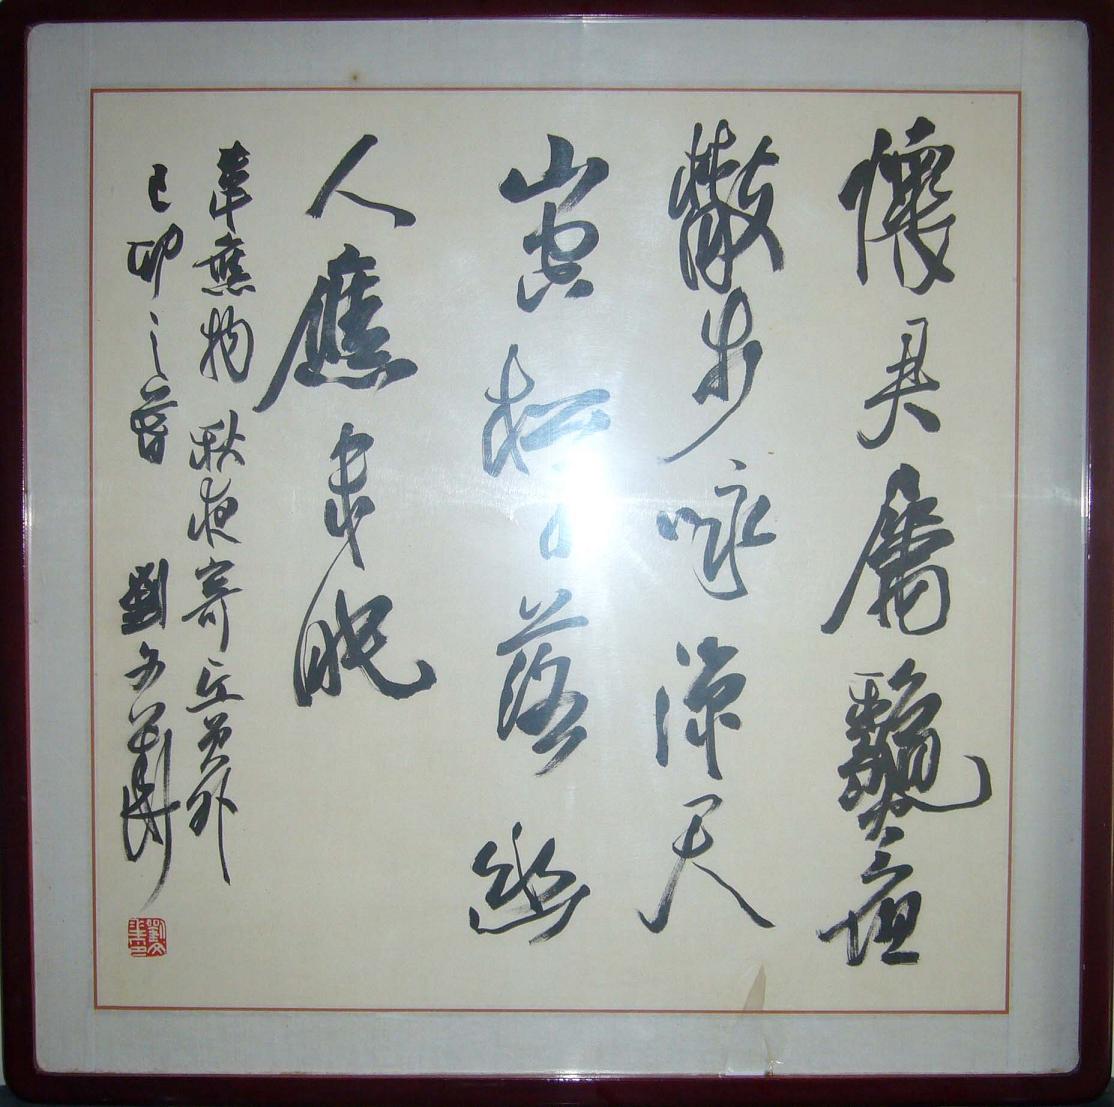 懷君屬龝夜
散步詠涼天
山空松子落幽
人應未眠
韋應物 秋夜寄丘員外
己卯之春 劉文華